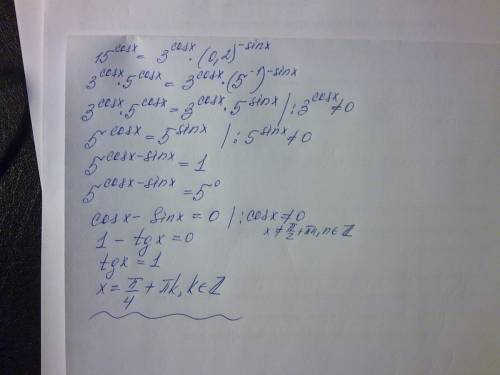 15^cosx = 3^cosx · (0,2)^-sinx
3^cosx · 5^cosx = 3^cosx · (5^-1)^-sinx
3^cosx · 5^cosx = 3^cosx · 5^sinx | : 3^cosx ≠ 0
5^cosx = 5^sinx | : 5^sinx ≠ 0
5^cosx-sinx = 1
5^cosx-sinx = 5^0
cosx - sinx = 0 | : cosx ≠ 0
x ≠ π/2 + πn, n ∈ Z
1 - tgx = 0
tgx = 1
x = π/4 + πk, k ∈ Z